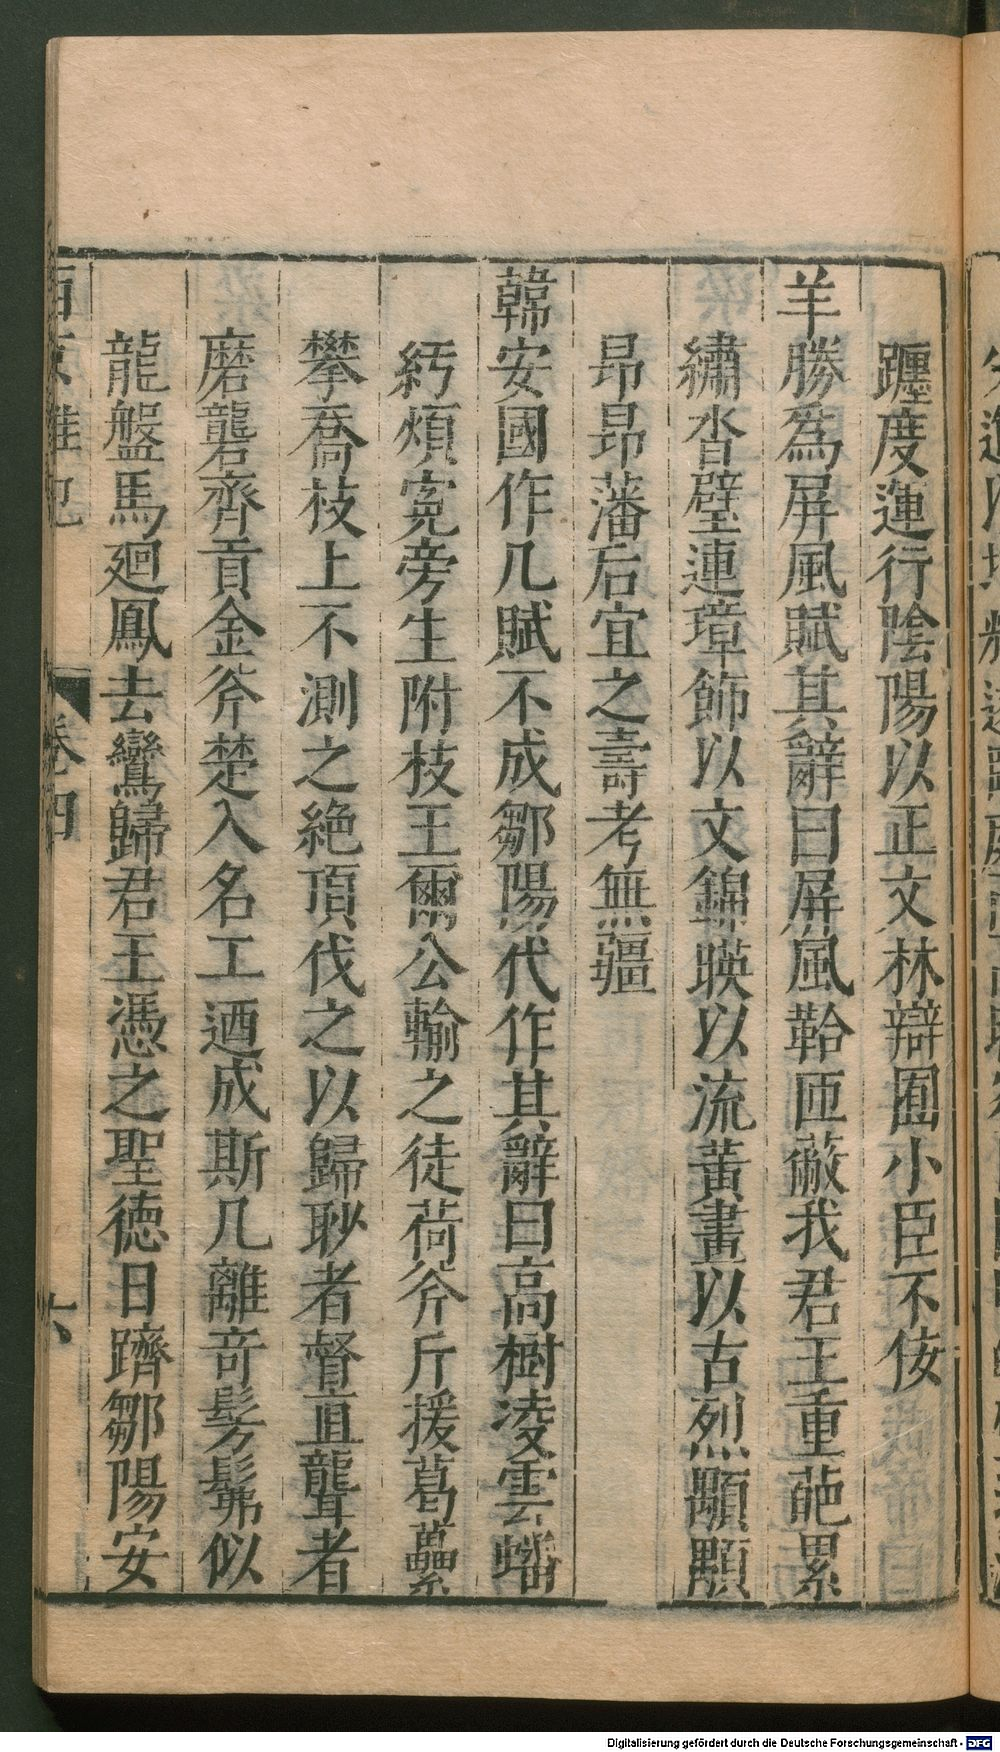 躔度運行陰陽以正文林辯囿小臣不佞
羊勝為屏風賦其辭曰屏風鞈匝蔽我君王重葩累
繡沓璧連璋飾以文錦暎以流黃畫以古烈顒顒
昂昂藩后宜之壽考無疆
韓安國作几賦不成鄒陽代作其辭曰高樹凌雲蟠
紆煩寃旁生附枝王爾公輸之徒荷斧斤援葛虆
攀喬枝上不測之絶頂伐之以歸眇者督直聾者
磨礱齊貢金斧楚入名工迺成斯几離竒髣髴似
龍盤馬廻鳳去鸞歸君王憑之聖德日躋鄒陽安
西京雜記 卷四 六
Digitalisierung gefördert durch die Deutsche Forschungsgemeinschaft - DFG